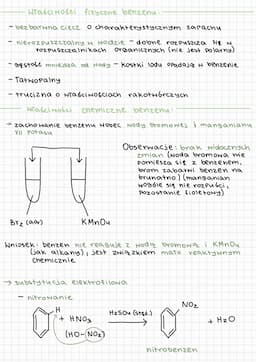 właściwości fizyczne benzenu:
- bezbarwna ciecz o charakterystycznym zapachu
- nierozpuszczalny w wodzie - dobrze rozpuszcza się w
rozpuszczalnikach organicznych (nie jest polarny)
- gęstość mniejsza od wody - kostki lodu opadają w benzenie
- łatwopalny
- trucizna o właściwościach rakotwórczych
właściwości chemiczne benzenu:
- zachowanie benzenu wobec wody bromowej i manganianu
VII potasu
Obserwacje: brak widocznych
zmian (woda bromowa nie
pomiesza się z benzenem,
brom zabarwi benzen na
brunatno) (manganian
wogóle się nie rozpuści,
pozostanie fioletowy)
Br₂ (aq)
KMnO₄
Wniosek: benzen nie reaguje z wodą bromową i KMnO₄
(jak alkany), jest związkiem mało reaktywnym
chemicznie
→ substytucja elektrofilowa
- nitrowanie
H
+ HNO₃
(HO-NO₂)
H₂SO₄ (stęż.)
NO₂
+ H₂O
nitrobenzen